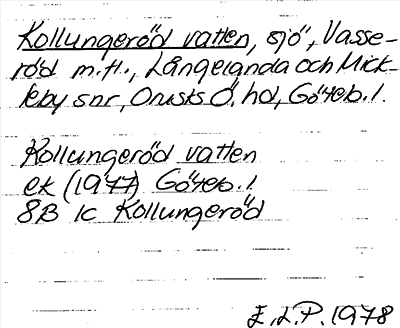 Kollungeröd vatten, sjö, Vasse-
röd m.fl., Långelanda och Mick-
leby snr, Orusts Ö. hd, Göteb. l.
Kollungeröd vatten
ek (1977) Göteb. l.
8B 1c Kollungeröd
E.L.P. 1978